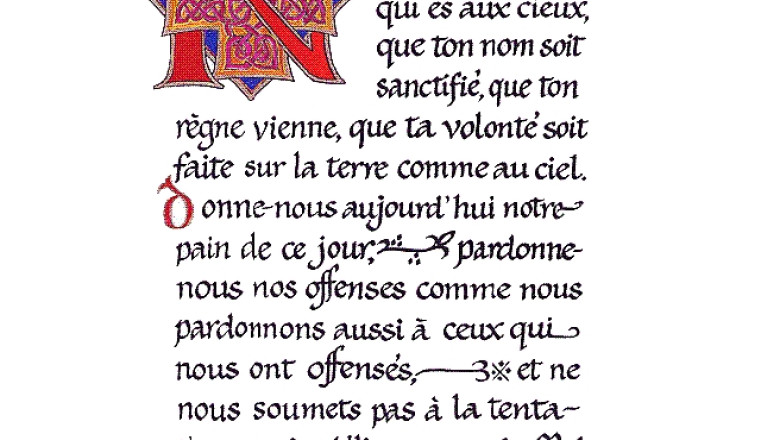 N
qui es aux cieux,
que ton nom soit
sanctifié, que ton
règne vienne, que ta volonté soit
faite sur la terre comme au ciel.
Donne-nous aujourd'hui notre
pain de ce jour, pardonne-
nous nos offenses comme nous
pardonnons aussi à ceux qui
nous ont offensés, et ne
nous soumets pas à la tenta-